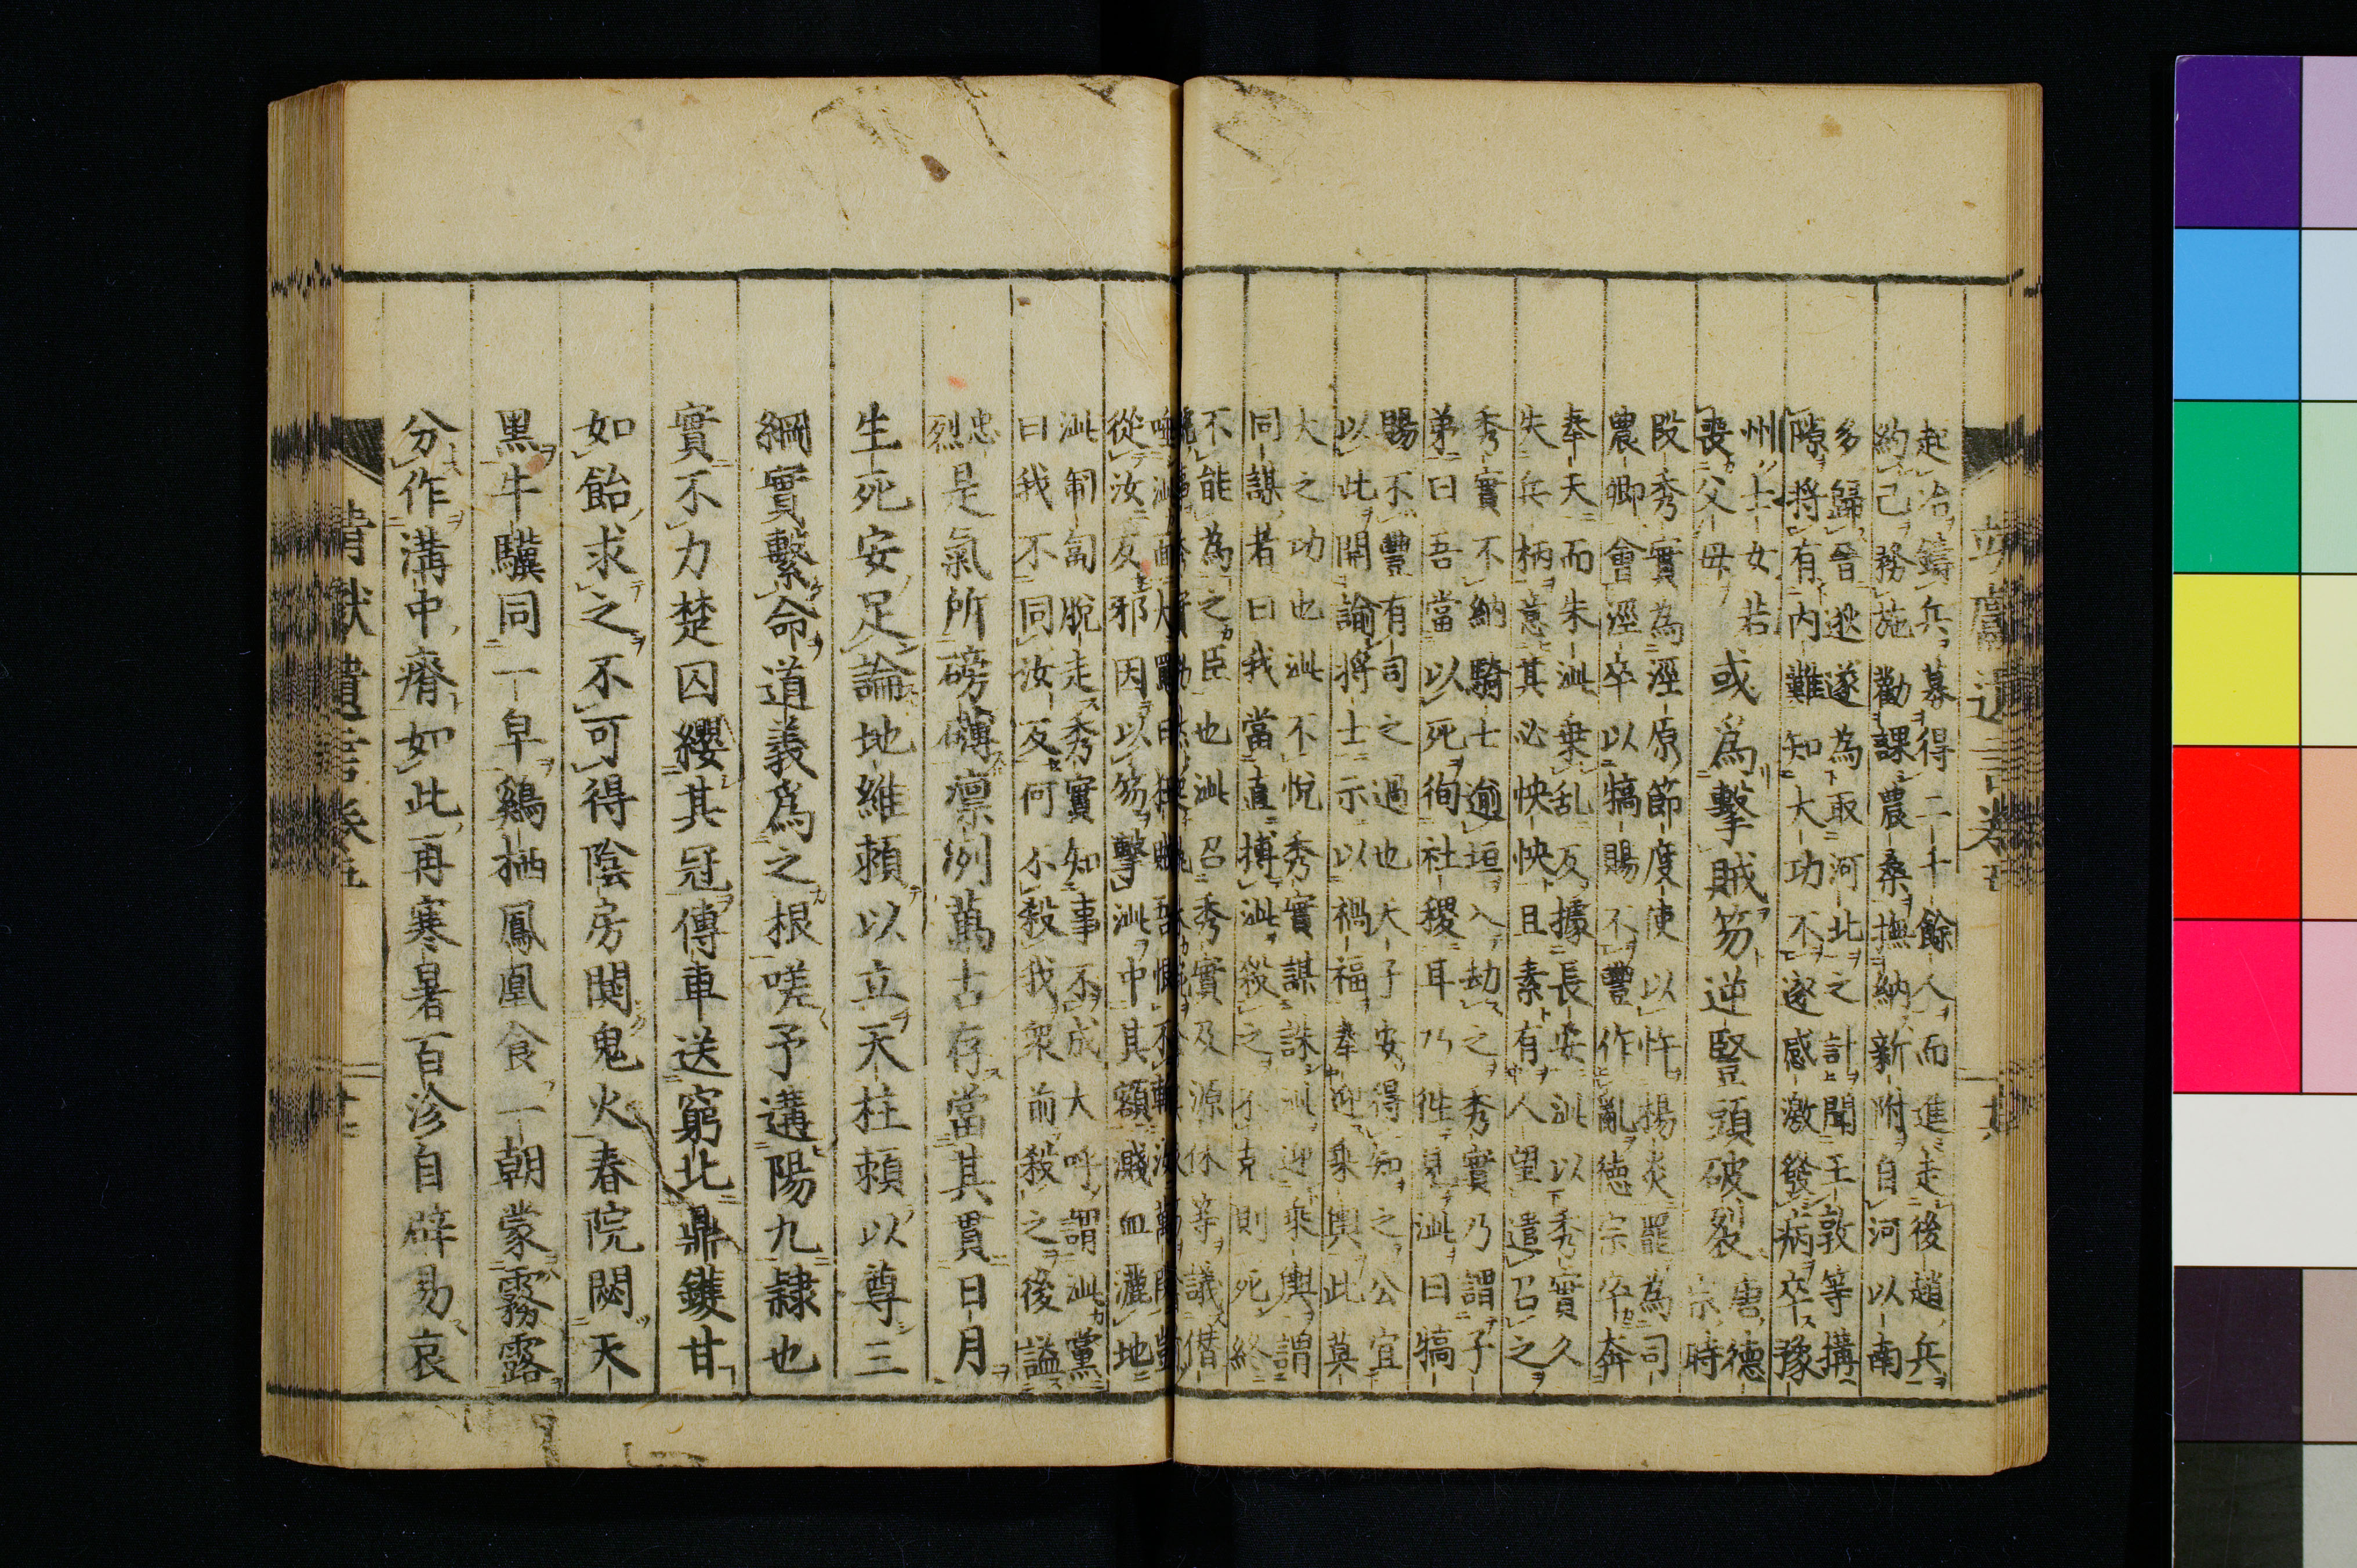 起冶鑄兵募得二千餘人而進走後趙兵
約己務施勸課農桑撫納新附自河以南
多歸晉逖遂為取河北之計聞王敦等搆
隙將有内難知大功不遂感激發病卒豫
州士女若
喪父母
或爲擊賊笏逆豎頭破裂
唐德
宗時
段秀實為涇原節度使以忤揚炎罷為司
農卿會涇卒以犒賜不豐作亂德宗卒奔
奉天而朱泚乗乱反據長安泚以秀實久
失兵柄意其必怏怏且素有人望遣召之
秀實不納騎士逾垣入劫之秀實乃謂子
弟曰吾當以死徇社稷耳乃徃見泚曰犒
賜不豐有司之過也天子安得知之公宜
以此開諭將士示以禍福奉迎乗輿此莫
大之功也泚不悦秀實謀誅泚迎乗輿謂
同謀若曰我當直搏泚殺之不克則死終
不能為之臣也泚召秀實及源休等議僭
唾泚面大罵曰狂賊吾恨不斬汝萬段豈
從汝反邪因以笏擊泚中其額濺血灑地
泚匍匐脱走秀實知事不成大呼謂泚黨
曰我不同汝反何不殺我衆前殺之後謚
忠
烈
是氣所磅礴凛冽萬古存當其貫日月
生死安足論地維頼以立天柱頼以尊三
綱實繫命道義爲之根嗟予遘陽九隷也
實不力楚囚纓其冠傳車送窮北鼎鑊甘
如飴求之不可得陰房闃鬼火春院閟天
黒牛驥同一皁鷄栖鳳凰食一朝蒙霧露
分作溝中瘠如此再寒暑百沴自辟易哀
靖獻遺言卷五